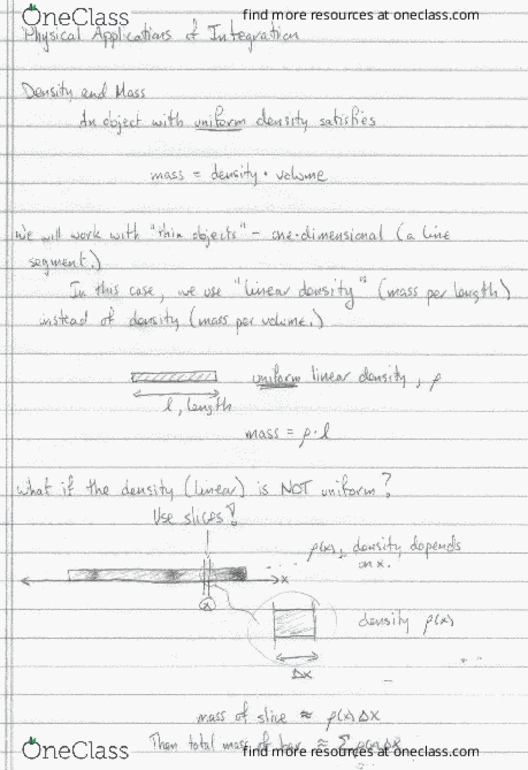 OneClass find more resources at oneclass.com
Physical Applications of Integration
Density and Mass
An object with uniform density satisfies
mass = density • volume
We will work with "thin objects" - one-dimensional (a line
segment.)
In this case, we use "linear density" (mass per length)
instead of density (mass per volume.)
uniform linear density, ρ
l, length
mass = ρ·l
What if the density (linear) is NOT uniform?
Use slices!
ρ(x), density depends
on x.
x
x
density ρ(x)
Δx
mass of slice ≈ ρ(x)Δx
Then total mass of bar ≈ Σ ρ(x)Δx
OneClass find more resources at oneclass.com